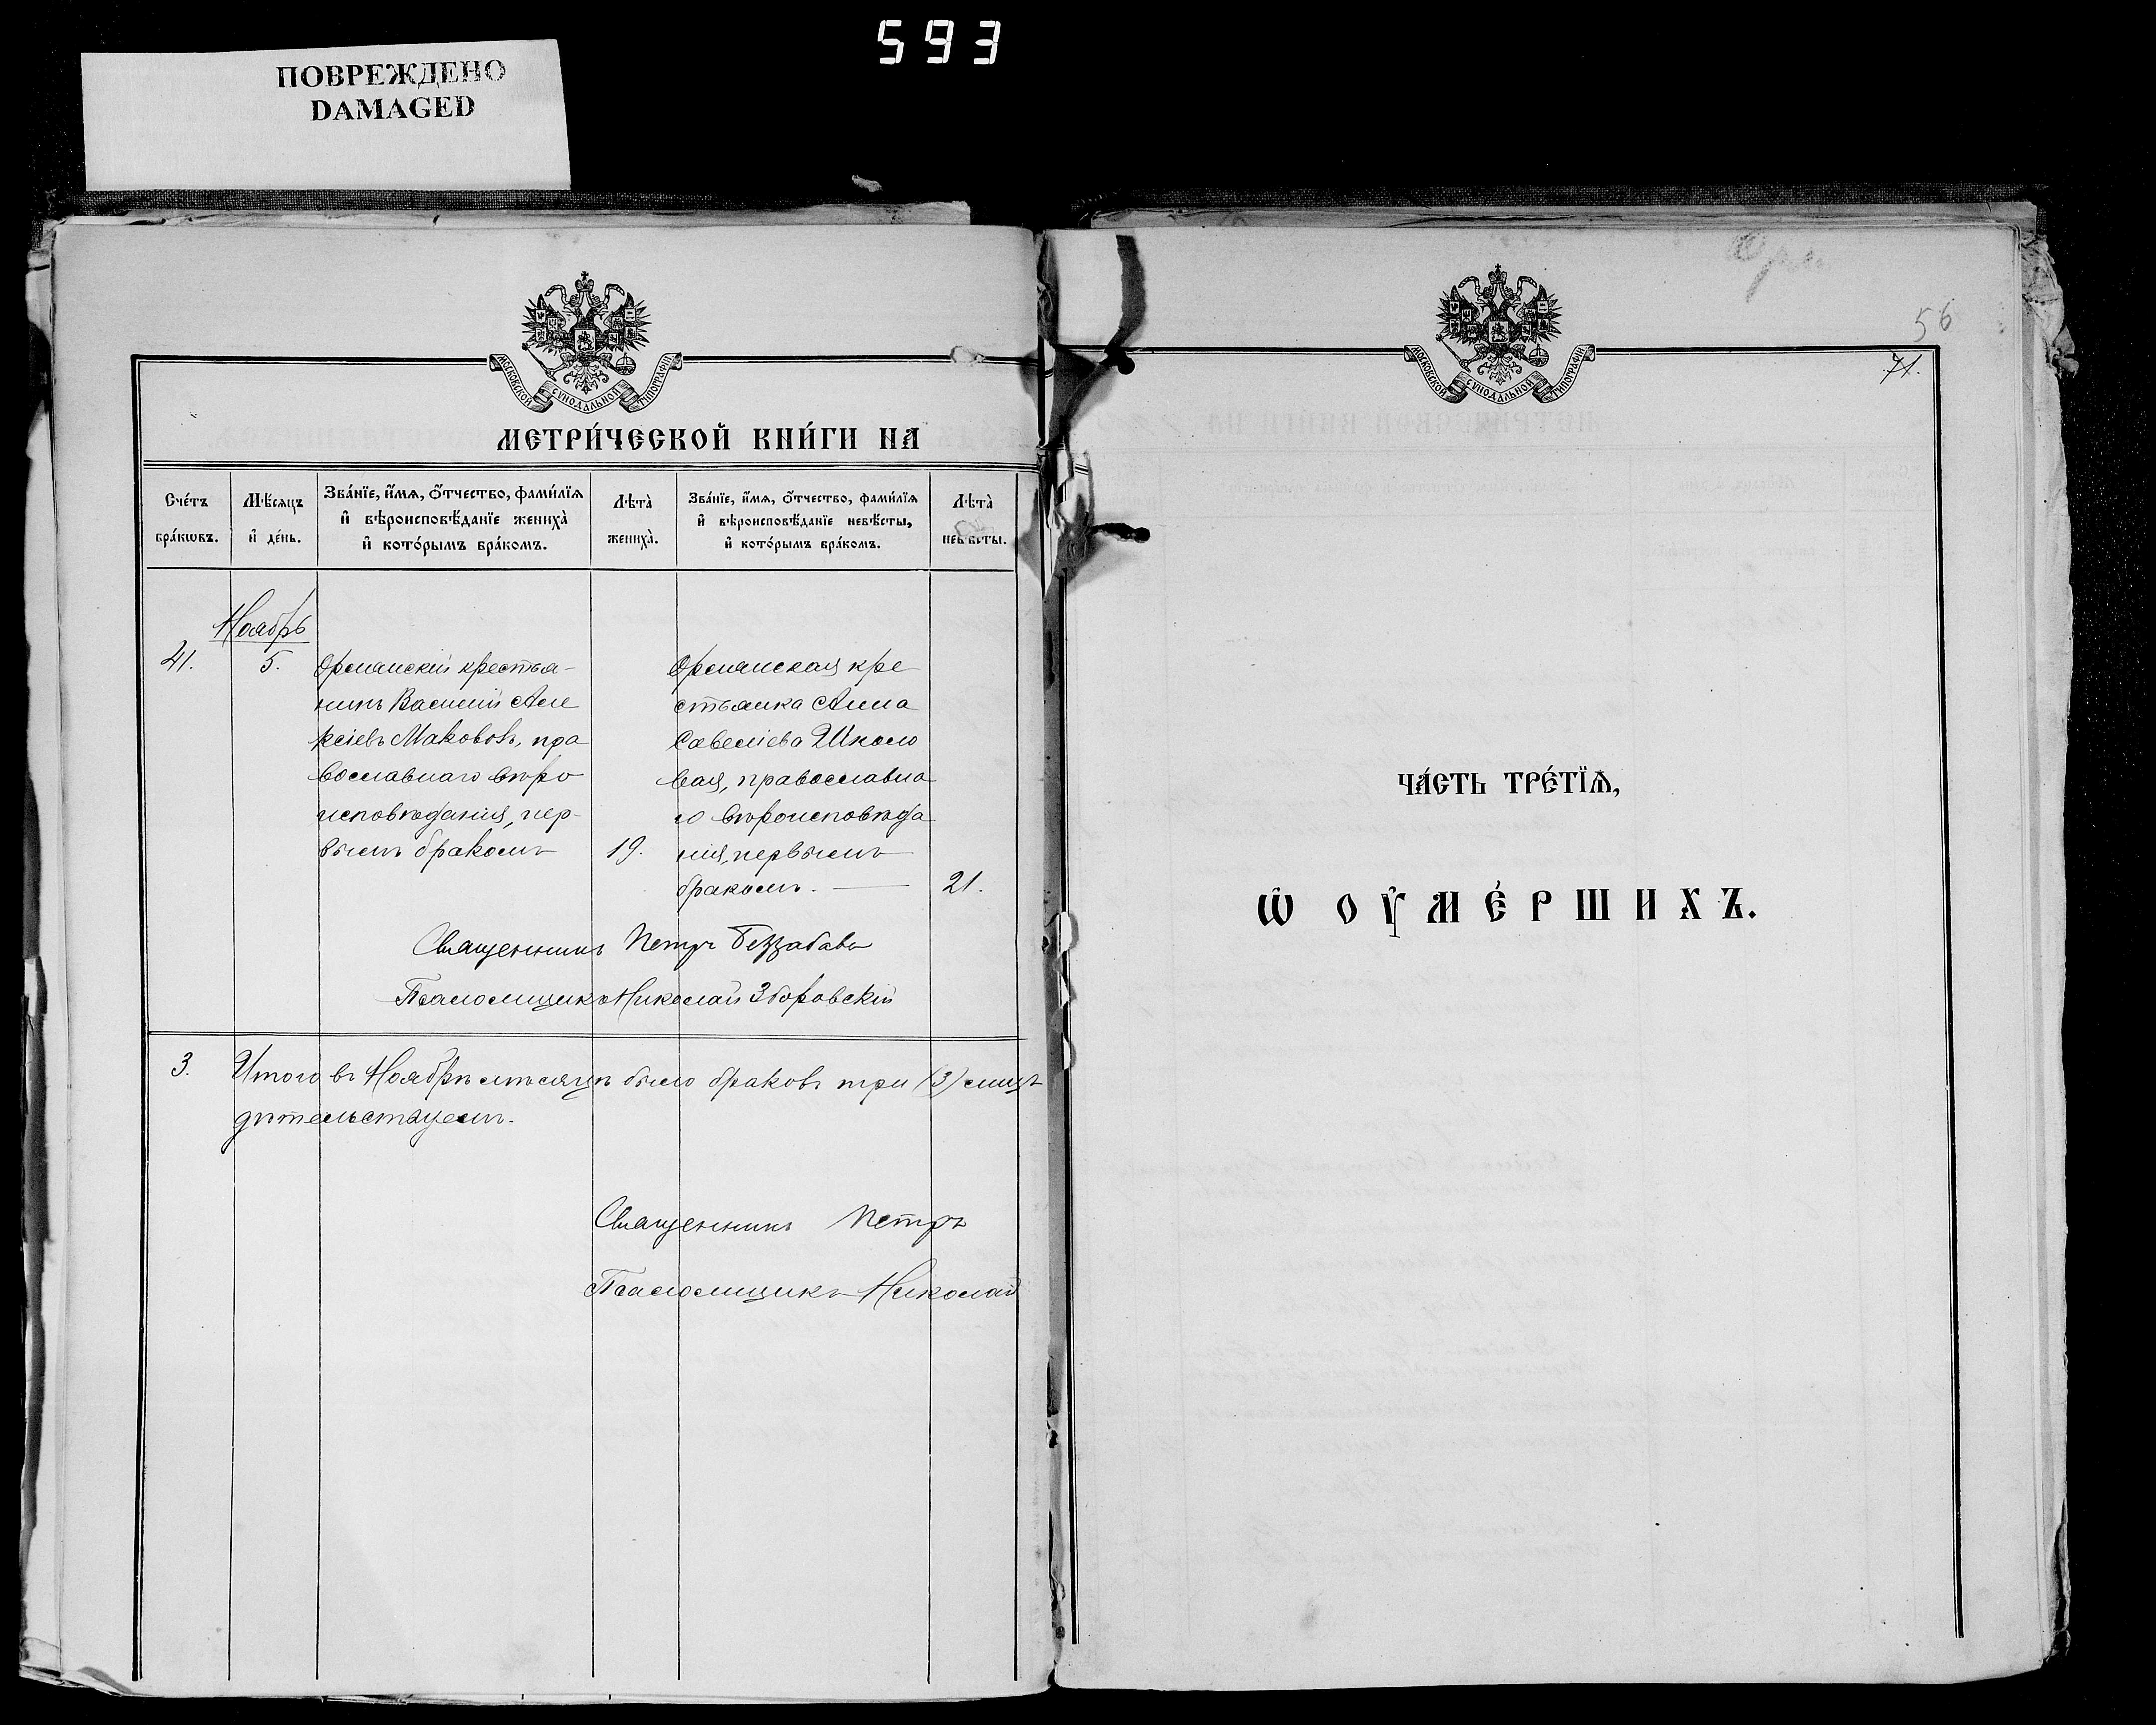 593
ПОВРЕЖДЕНО
DAMAGED
МОСКОВСКОЙ СѴНОДАЛЬНОЙ ТИПОГРАФІИ
МЕТРИ́ЧЕСКОЙ КНИ́ГИ НА
Сче́тъ бра́кѡвъ.
Мѣ́сяцъ и҆ де́нь.
Зва́нїе, и҆́мѧ, ѻ҆́тчество, фами́лїѧ
и҆ вѣроисповѣ́данїе жениха̀
и҆ кото́рымъ бра́комъ.
Лѣта̀ жениха̀.
Зва́нїе, и҆́мѧ, ѻ҆́тчество, фами́лїѧ
и҆ вѣроисповѣ́данїе невѣ́сты,
и҆ кото́рымъ бра́комъ.
Лѣта̀ невѣ́сты.
Ноябрь
41.
5.
крестья-
нинъ Василій Але
ксіевъ Маковой, пра
вославнаго вѣро
исповѣданія, пер-
вымъ бракомъ
19.
кре
стьянка Анна
Савеліева Школо
вая, православна
го вѣроисповѣда
нія, первымъ
бракомъ.
21.
Священникъ Петръ Беззабава
Псаломщикъ Николай Зборовскій
3.
Итого въ Ноябрѣ мѣсяцѣ было браковъ три (3)
дѣтельствуемъ.
Священникъ Петръ
Псаломщикъ Николай
56
71.
МОСКОВСКОЙ СѴНОДАЛЬНОЙ ТИПОГРАФІИ
ЧА́СТЬ ТРЕ́ТЇѦ,
Ѡ҆ ОУ҆МЕ́РШИХЪ.